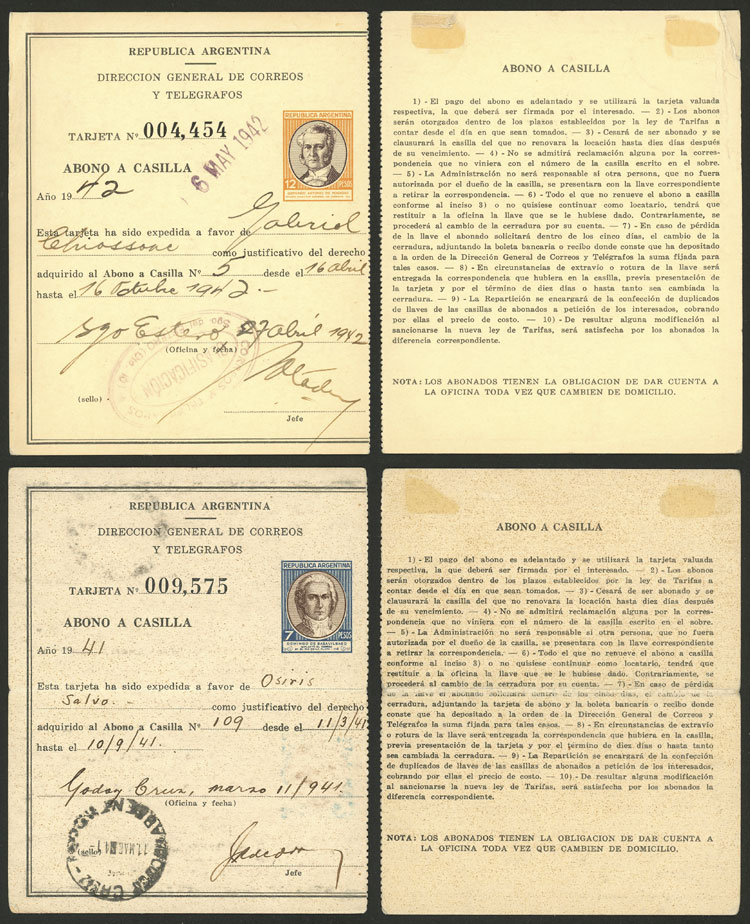 REPUBLICA ARGENTINA
DIRECCION GENERAL DE CORREOS
Y TELEGRAFOS
TARJETA Nº 004,454
6 MAY 1942
12 PESOS
ABONO A CASILLA
Año 1942
Esta tarjeta ha sido expedida a favor de Gabriel
Chiossone como justificativo del derecho
adquirido al Abono a Casilla Nº 5 desde el 16 abril
hasta el 16 Octubre 1942 -
Sgo Estero 27 abril 1942
(Oficina y fecha)
CLASIFICACIÓN
(sello)
Jefe
ABONO A CASILLA
1) - El pago del abono es adelantado y se utilizará la tarjeta valuada
respectiva, la que deberá ser firmada por el interesado. — 2) - Los abonos
serán otorgados dentro de los plazos establecidos por la ley de Tarifas a
contar desde el día en que sean tomados. — 3) - Cesará de ser abonado y se
clausurará la casilla del que no renovara la locación hasta diez días después
de su vencimiento. — 4) - No se admitirá reclamación alguna por la corres-
pondencia que no viniera con el número de la casilla escrito en el sobre.
— 5) - La Administración no será responsable si otra persona, que no fuera
autorizada por el dueño de la casilla, se presentara con la llave correspondiente
a retirar la correspondencia. — 6) - Todo el que no renueve el abono a casilla
conforme al inciso 3) o no quisiese continuar como locatario, tendrá que
restituir a la oficina la llave que se le hubiese dado. Contrariamente, se
procederá al cambio de la cerradura por su cuenta. — 7) - En caso de pérdida
de la llave el abonado solicitará dentro de los cinco días, el cambio de la
cerradura, adjuntando la boleta bancaria o recibo donde conste que ha depositado
a la orden de la Dirección General de Correos y Telégrafos la suma fijada para
tales casos. — 8) - En circunstancias de extravío o rotura de la llave será
entregada la correspondencia que hubiera en la casilla, previa presentación de
la tarjeta y por el término de diez días o hasta tanto sea cambiada la
cerradura. — 9) - La Repartición se encargará de la confección de duplicados
de llaves de las casillas de abonados a petición de los interesados, cobrando
por ellas el precio de costo. — 10) - De resultar alguna modificación al
sancionarse la nueva ley de Tarifas, será satisfecha por los abonados la
diferencia correspondiente.
NOTA: LOS ABONADOS TIENEN LA OBLIGACION DE DAR CUENTA A
LA OFICINA TODA VEZ QUE CAMBIEN DE DOMICILIO.
REPUBLICA ARGENTINA
DIRECCION GENERAL DE CORREOS
Y TELEGRAFOS
TARJETA Nº 009,575
REPUBLICA ARGENTINA
7 PESOS
ABONO A CASILLA
Año 1941
Esta tarjeta ha sido expedida a favor de Osiris
Salvo. - como justificativo del derecho
adquirido al Abono a Casilla Nº 109 desde el 11/3/41
hasta el 10/9/41. -
Godoy Cruz, marzo 11/941.
(Oficina y fecha)
(sello)
Jefe
ABONO A CASILLA
1) - El pago del abono es adelantado y se utilizará la tarjeta valuada
respectiva, la que deberá ser firmada por el interesado. — 2) - Los abonos
serán otorgados dentro de los plazos establecidos por la ley de Tarifas a
contar desde el día en que sean tomados. — 3) - Cesará de ser abonado y se
clausurará la casilla del que no renovara la locación hasta diez días después
de su vencimiento. — 4) - No se admitirá reclamación alguna por la corres-
pondencia que no viniera con el número de la casilla escrito en el sobre.
— 5) - La Administración no será responsable si otra persona, que no fuera
autorizada por el dueño de la casilla, se presentara con la llave correspondiente
a retirar la correspondencia. — 6) - Todo el que no renueve el abono a casilla
conforme al inciso 3) o no quisiese continuar como locatario, tendrá que
restituir a la oficina la llave que se le hubiese dado. Contrariamente, se
procederá al cambio de la cerradura por su cuenta. — 7) - En caso de pérdida
de la llave el abonado solicitará dentro de los cinco días, el cambio de la
cerradura, adjuntando la tarjeta de abono y la boleta bancaria o recibo donde
conste que ha depositado a la orden de la Dirección General de Correos y
Telégrafos la suma fijada para tales casos. — 8) - En circunstancias de extravío
o rotura de la llave será entregada la correspondencia que hubiera en la casilla,
previa presentación de la tarjeta y por el término de diez días o hasta tanto
sea cambiada la cerradura. — 9) - La Repartición se encargará de la confección
de duplicados de llaves de las casillas de abonados a petición de los interesados,
cobrando por ellas el precio de costo. — 10) - De resultar alguna modificación
al sancionarse la nueva ley de Tarifas, será satisfecha por los abonados la
diferencia correspondiente.
NOTA: LOS ABONADOS TIENEN LA OBLIGACION DE DAR CUENTA A
LA OFICINA TODA VEZ QUE CAMBIEN DE DOMICILIO.